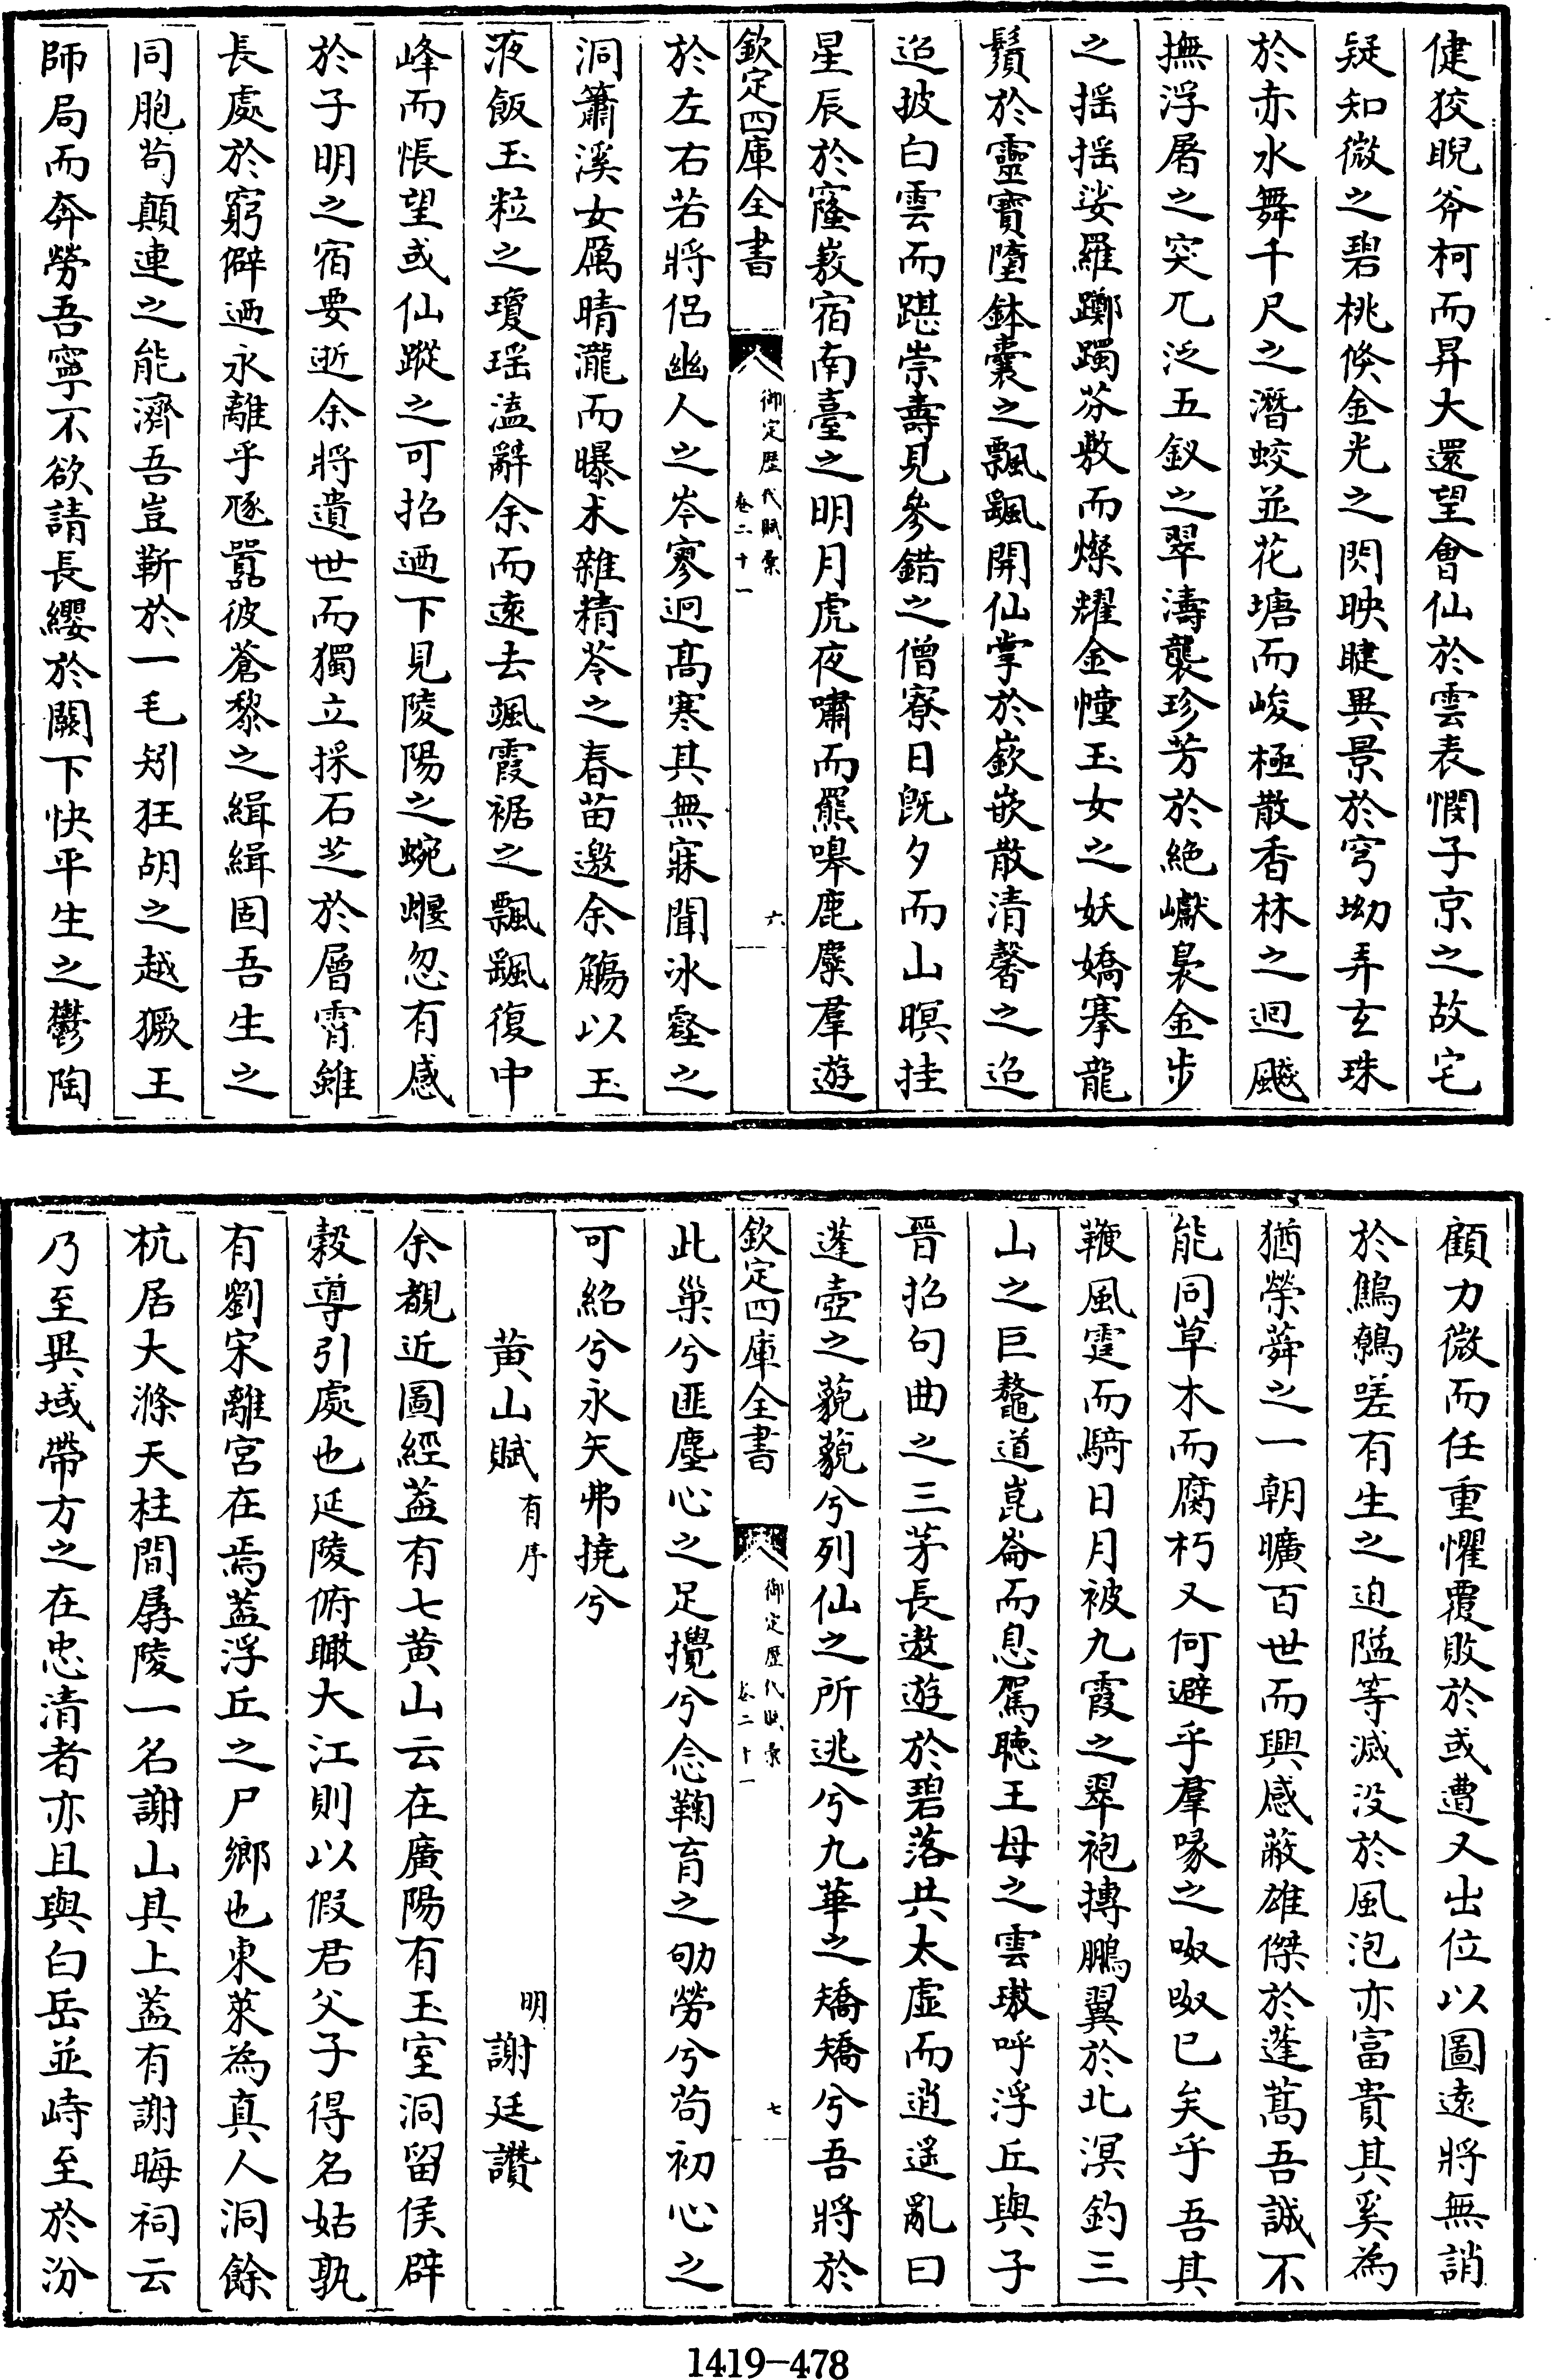 健狡睨斧柯而昇大還望會仙於雲表憫子京之故宅
疑知微之碧桃倐金光之閃映睫異景於穹坳弄玄珠
於赤水舞千尺之潛蛟並花塘而峻極散香林之迴飈
撫浮屠之突兀泛五釵之翠濤襲珍芳於絶巘裊金步
之揺揺娑羅躑躅芬敷而燦耀金幢玉女之妖嬌搴龍
鬚於靈寶墮鉢囊之飄飄開仙掌於嶔嵌散清馨之迢
迢披白雲而踸崇壽見參錯之僧寮日旣夕而山暝挂
星辰於窿嶅宿南臺之明月虎夜嘯而羆嘷鹿麋羣遊
欽定四庫全書
御定歴代賦彙
卷二十一
六
於左右若將侣幽人之岑寥迥髙寒其無寐聞冰壑之
洞簫溪女厲晴瀧而曝木雜精苓之春苗邀余觴以玉
液飯玉粒之瓊瑶溘辭余而遠去颯霞裾之飄飄復中
峰而悵望或仙蹤之可招迺下見陵陽之蜿蜒忽有感
於子明之宿要逝余將遺世而獨立採石芝於層霄雖
長處於窮僻迺永離乎豗嚣彼蒼黎之緝緝固吾生之
同胞茍顛連之能濟吾豈靳於一毛矧狂胡之越獗王
師局而奔勞吾寧不欲請長纓於闕下快平生之鬱陶
顧力微而任重懼覆敗於或遭又出位以圖遠將無誚
於鷦鷯嗟有生之迫隘等滅没於風泡亦富貴其奚為
猶榮蕣之一朝曠百世而興感蔽雄傑於蓬蒿吾誠不
能同草木而腐朽又何避乎羣喙之呶呶已矣乎吾其
鞭風霆而騎日月被九霞之翠袍摶鵬翼於北溟釣三
山之巨鼇道崑崙而息駕聴王母之雲璈呼浮丘與子
晉招句曲之三茅長遨遊於碧落共太虛而逍遥亂曰
蓬壺之藐藐兮列仙之所逃兮九華之矯矯兮吾將於
欽定四庫全書
御定歴代賦彙
卷二十一
七
此巢兮匪塵心之足攪兮念鞠育之劬勞兮茍初心之
可紹兮永矢弗撓兮
黄山賦有序 明謝廷讚
余覩近圖經葢有七黄山云在廣陽有玉室洞留侯辟
穀導引處也延陵俯瞰大江則以假君父子得名姑孰
有劉宋離宫在焉葢浮丘之尸鄉也東萊為真人洞餘
杭居大滌天柱間孱陵一名謝山具上葢有謝晦祠云
乃至異域帶方之在忠清者亦且與白岳並峙至於汾
1419-478